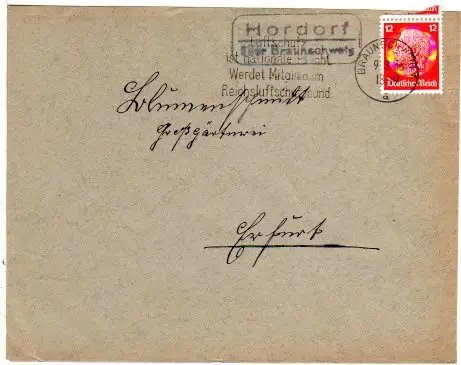 Hordorf
über Braunschweig
Luftschutz
ist nationale Pflicht
Werdet Mitglied im
Reichsluftschutzbund
BRAUNSCHWEIG
a
12 12
Deutsches Reich
Blumenschmidt
Großgärtnerei
Erfurt